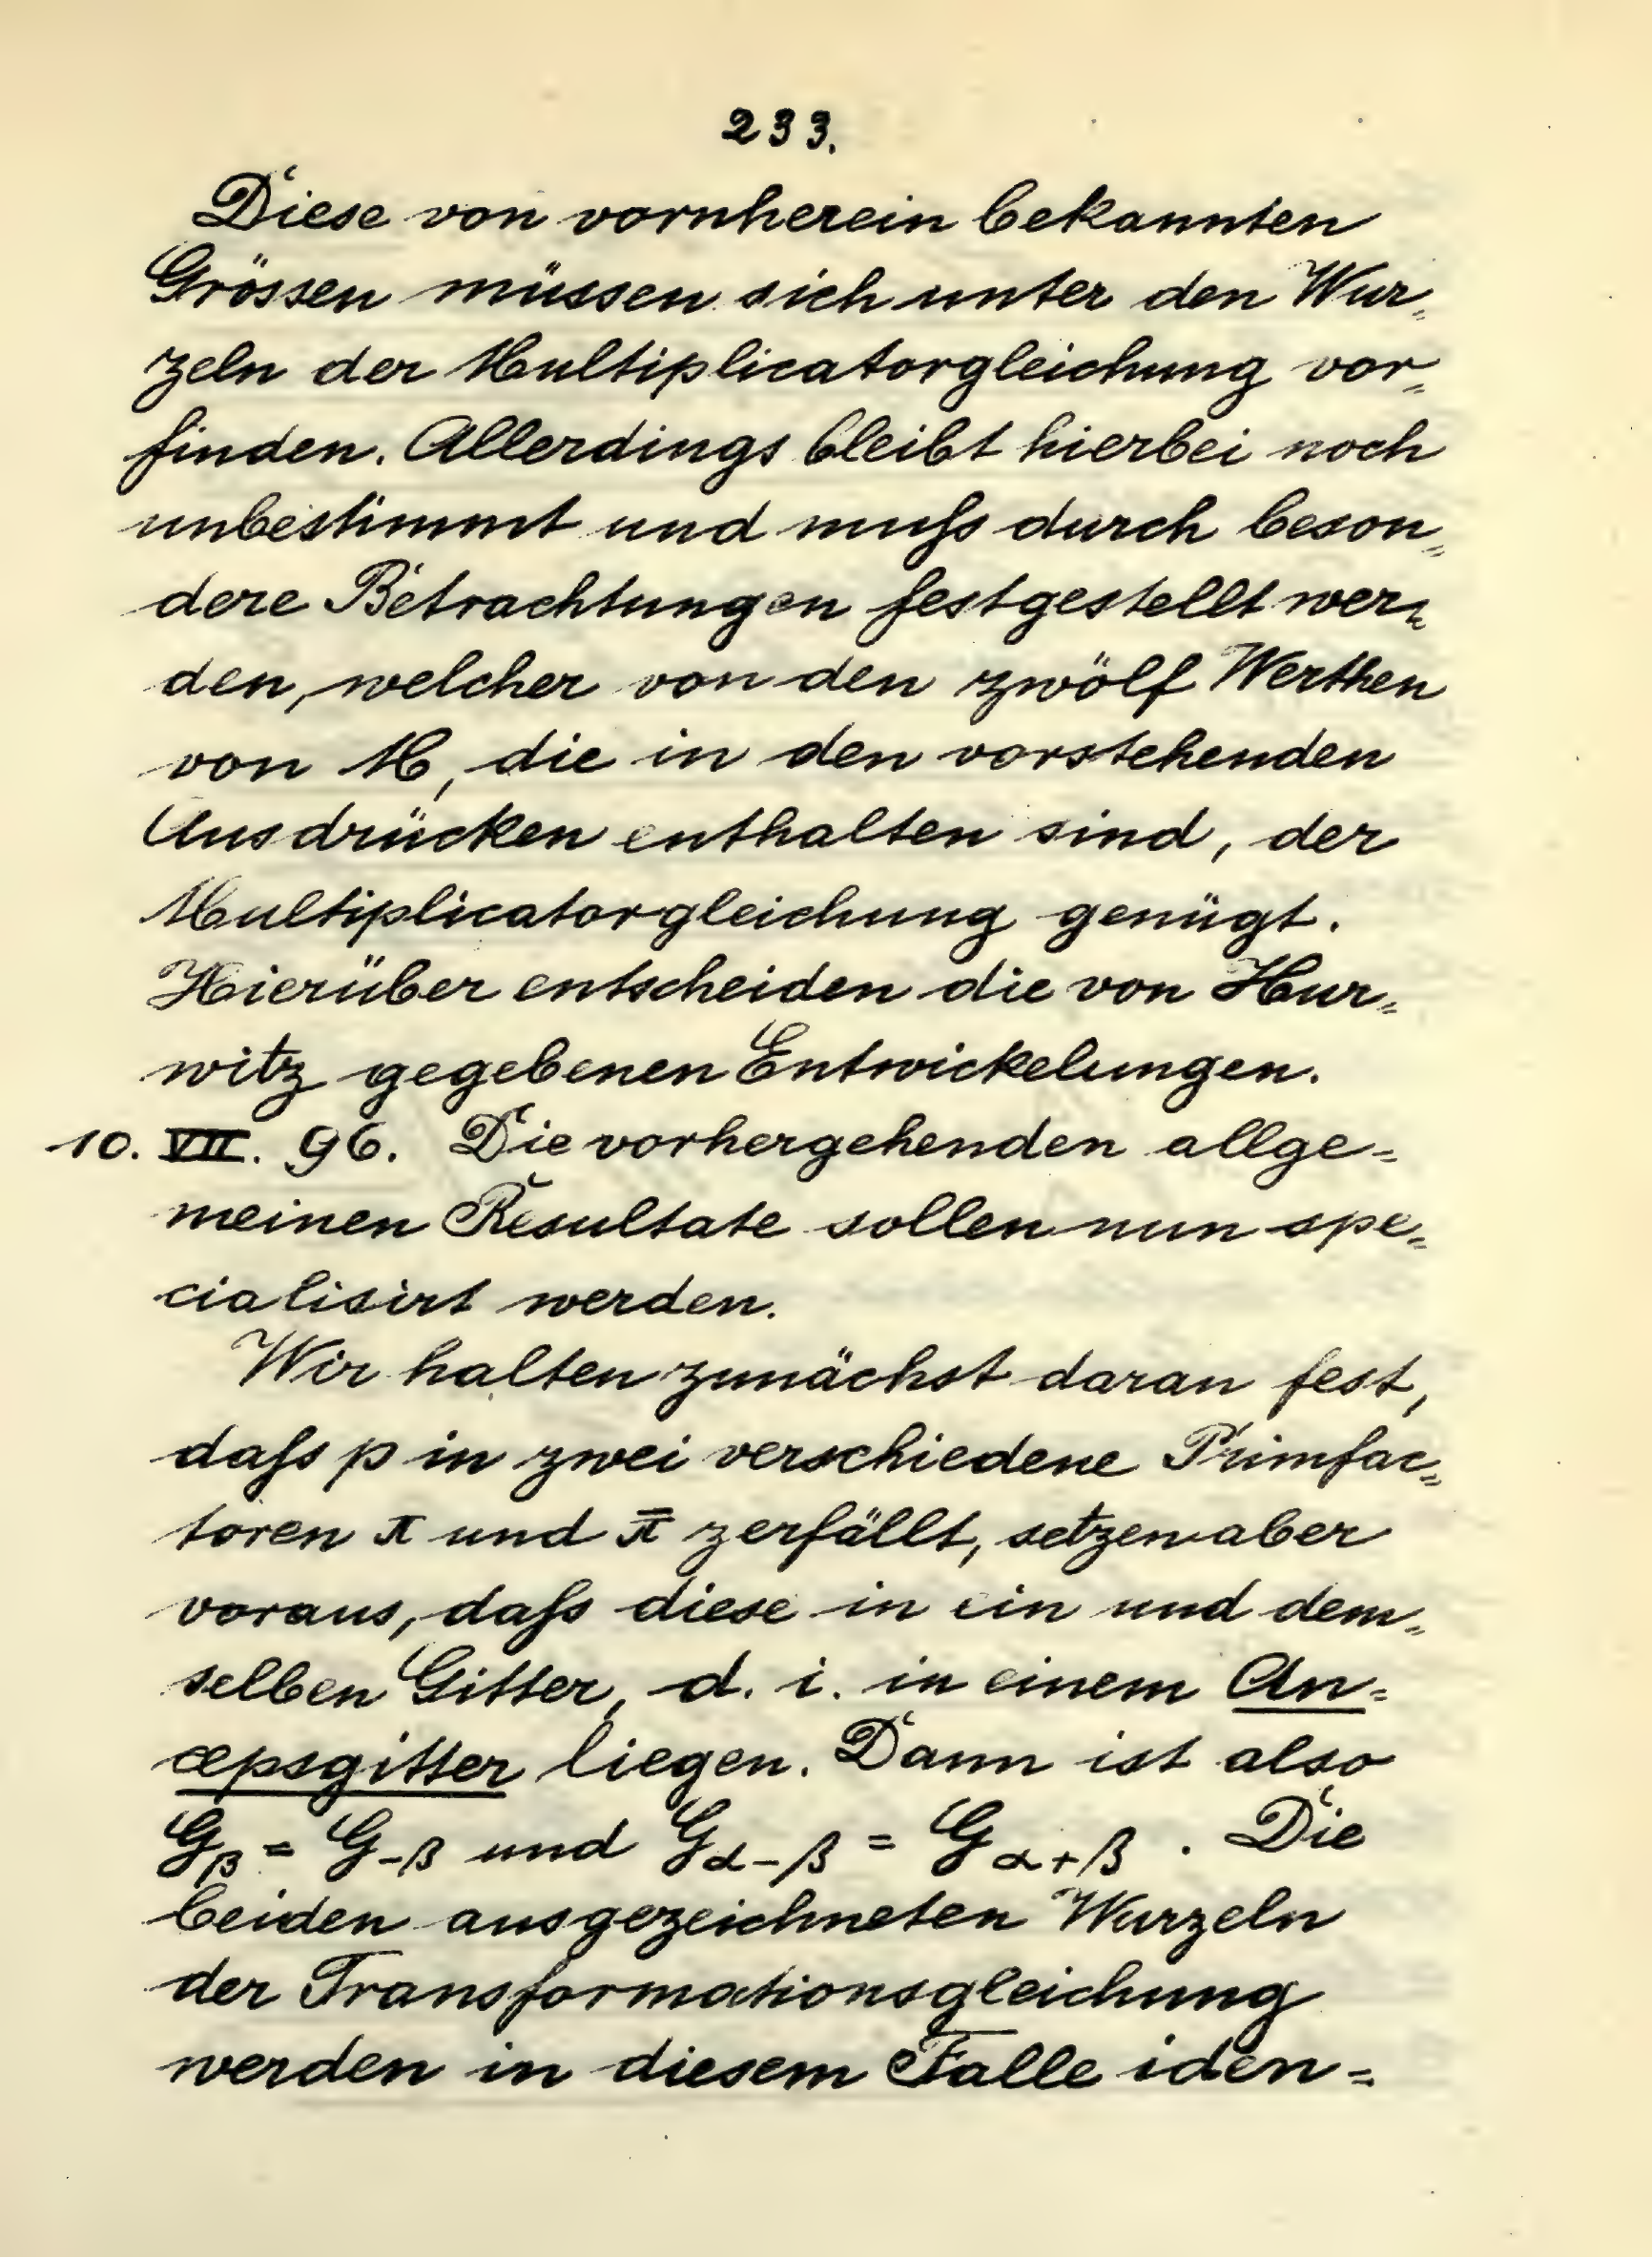 233.
Diese von vornherein bekannten
Grössen müssen sich unter den Wur=
zeln der Multiplicatorgleichung vor=
finden. Allerdings bleibt hierbei noch
unbestimmt und muſs durch beson=
dere Betrachtungen festgestellt wer=
den, welcher von den zwölf Werthen
von M, die in den vorstehenden
Ausdrücken enthalten sind, der
Multiplicatorgleichung genügt.
Hierüber entscheiden die von Hur=
witz gegebenen Entwickelungen.
10. VII. 96. Die vorhergehenden allge=
meinen Resultate sollen nun spe=
cialisirt werden.
Wir halten zunächst daran fest,
daſs p in zwei verschiedene Primfac=
toren π und π̄ zerfällt, setzen aber
voraus, daſs diese in ein und dem=
selben Gitter, d. i. in einem An=
cepsgitter liegen. Dann ist also
G_β = G_{-β} und G_{α-β} = G_{α+β}. Die
beiden ausgezeichneten Wurzeln
der Transformationsgleichung
werden in diesem Falle iden=